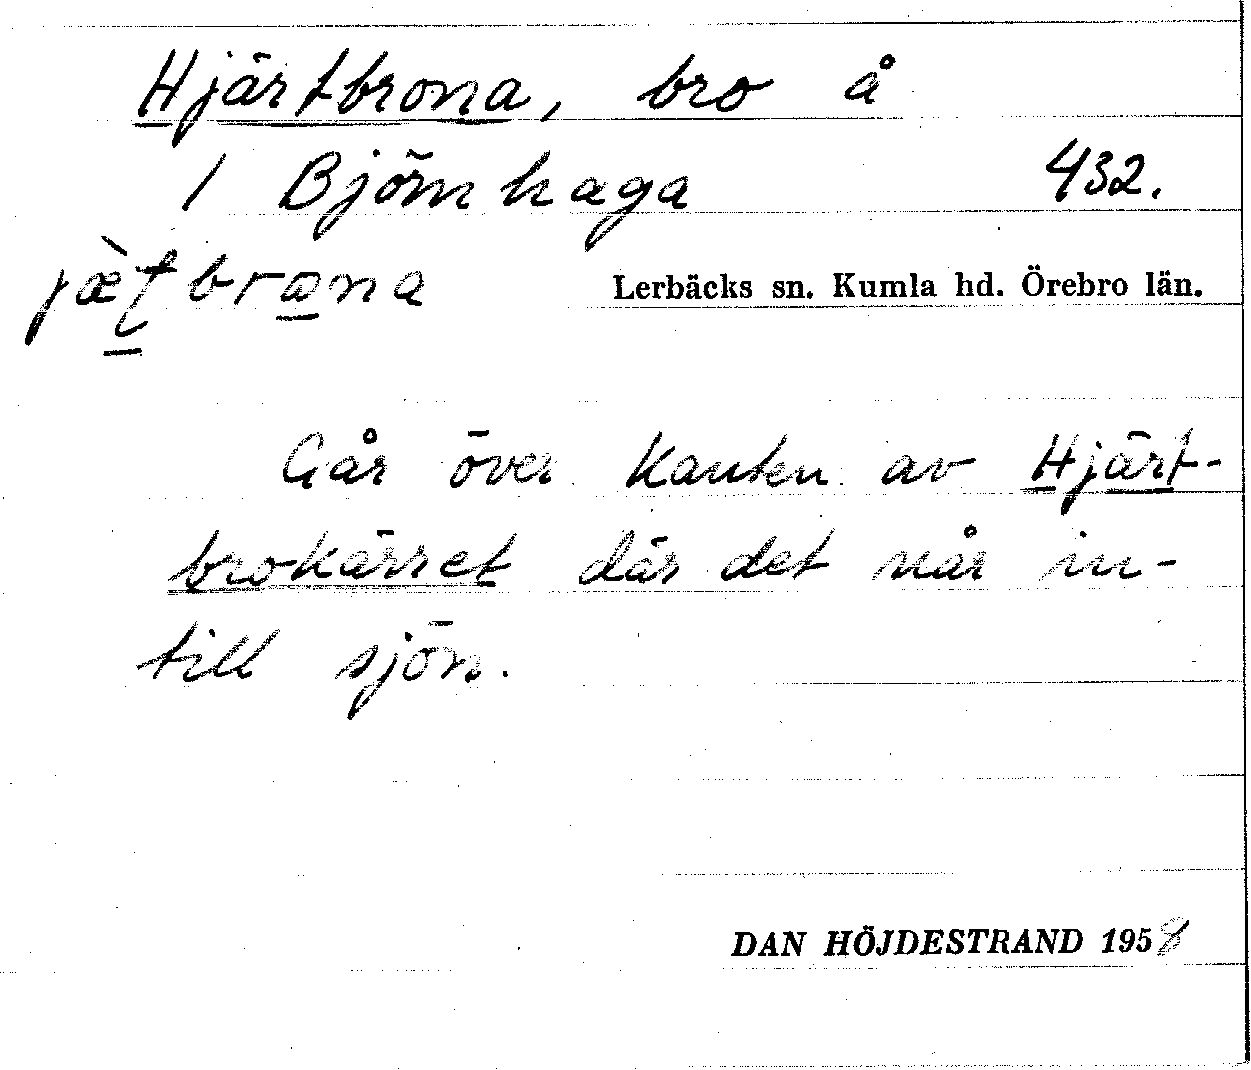 Hjärtbrona, bro å
1 Björnhaga 432.
jæ̀ṭbrana
Lerbäcks sn. Kumla hd. Örebro län.
Går över kanten av Hjärt-
brokärret där det når in-
till sjön.
DAN HÖJDESTRAND 1958